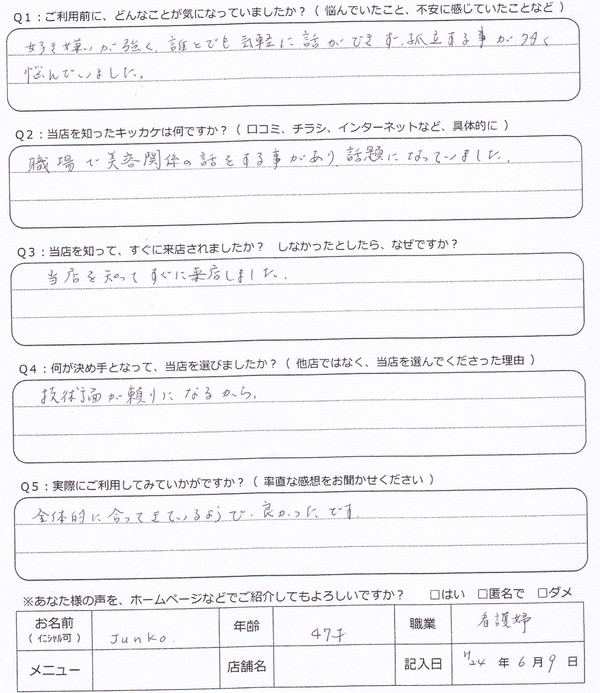 Q1：ご利用前に、どんなことが気になっていましたか？（ 悩んでいたこと、不安に感じていたことなど ）
好き嫌いが強く、誰とでも気軽に話ができず、孤立する事が多く
悩んでいました。
Q2：当店を知ったキッカケは何ですか？（ 口コミ、チラシ、インターネットなど、具体的に ）
職場で美容関係の話をする事があり、話題になっていました。
Q3：当店を知って、すぐに来店されましたか？ しなかったとしたら、なぜですか？
当店を知ってすぐに来店しました。
Q4：何が決め手となって、当店を選びましたか？（ 他店ではなく、当店を選んでくださった理由 ）
技術面が頼りになるから。
Q5：実際にご利用してみていかがですか？（ 率直な感想をお聞かせください ）
全体的に合ってきているようで、良かったです。
※あなた様の声を、ホームページなどでご紹介してもよろしいですか？ □はい □匿名で □ダメ
お名前 （イニシャル可） Junko. 年齢 47才 職業 看護婦
メニュー 店舗名 記入日 H24 年 6 月 9 日